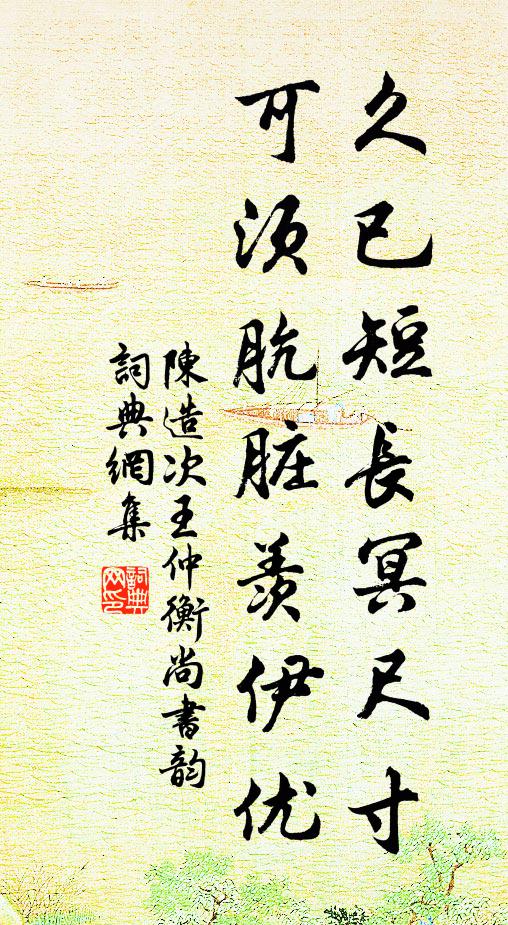 久已短長冥尺寸
可须肮脏羨伊优
陳造次王仲衡尚書韵
詞典網集
詞典网印